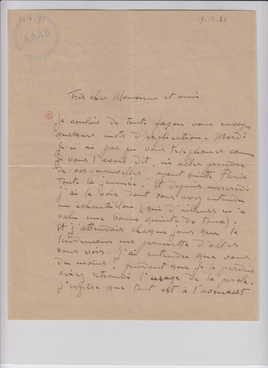 19-12-25
AAAB
Très cher Monsieur et ami
Je voulais de toute façon vous envoyer
quelques mots d'explication. Mardi
je n'ai pas pu vous téléphoner comme
je vous l'avais dit, ni aller prendre
de vos nouvelles, ayant quitté Paris
toute la journée. Et depuis mercredi
j'ai la voix dont vous avez entendu
un échantillon (qui d'ailleurs m'a
valu une bonne quinte de toux).
Et j'attendais chaque jour que le
lendemain me permette d'aller
vous voir. J'ai entendu que vous
du moins, pendant que je le perdais
aviez retrouvé l'usage de la parole.
J'espère que tout est à l'avenant